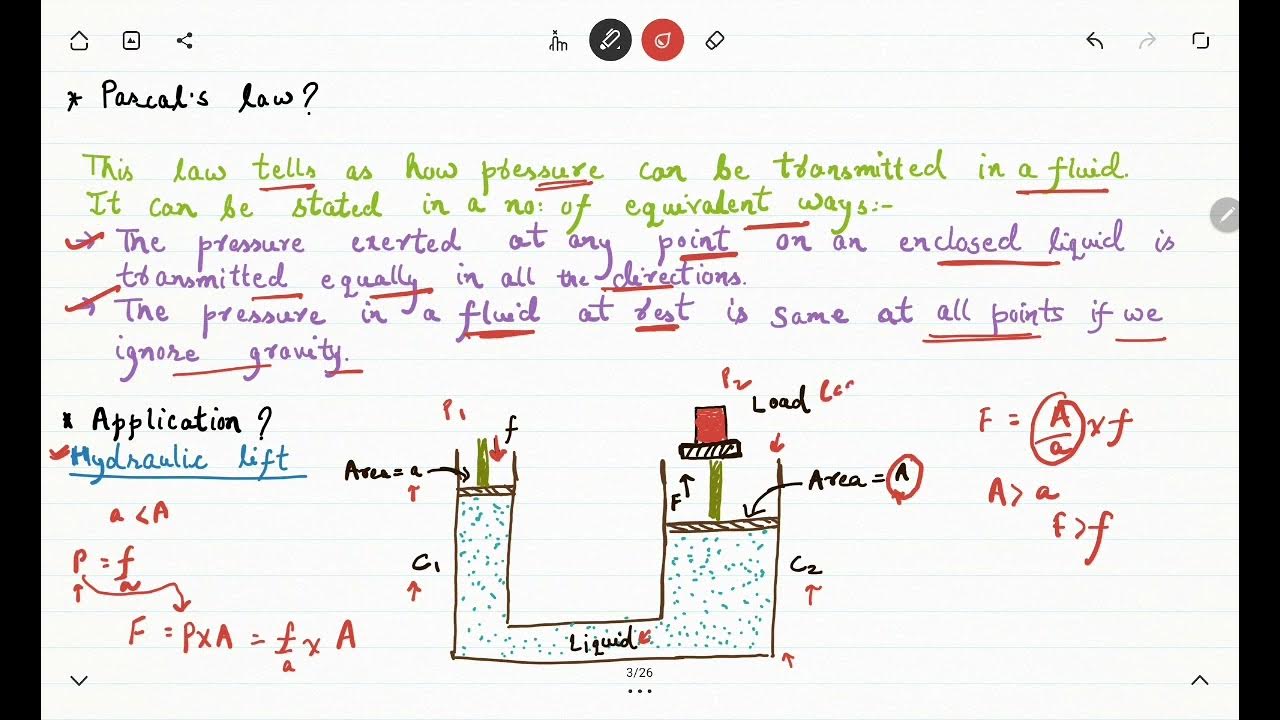 * Pascal's law?
This law tells as how pressure can be transmitted in a fluid.
It can be stated in a no: of equivalent ways:-
→ The pressure exerted at any point on an enclosed liquid is
transmitted equally in all the directions.
→ The pressure in a fluid at rest is same at all points if we
ignore gravity.
* Application?
Hydraulic lift
a < A
P = f/a
F = P×A = f/a × A
P1
f
Area = a
C1
Liquid
P2
Load
F
Area = A
C2
F = A/a × f
A > a
F > f
3/26